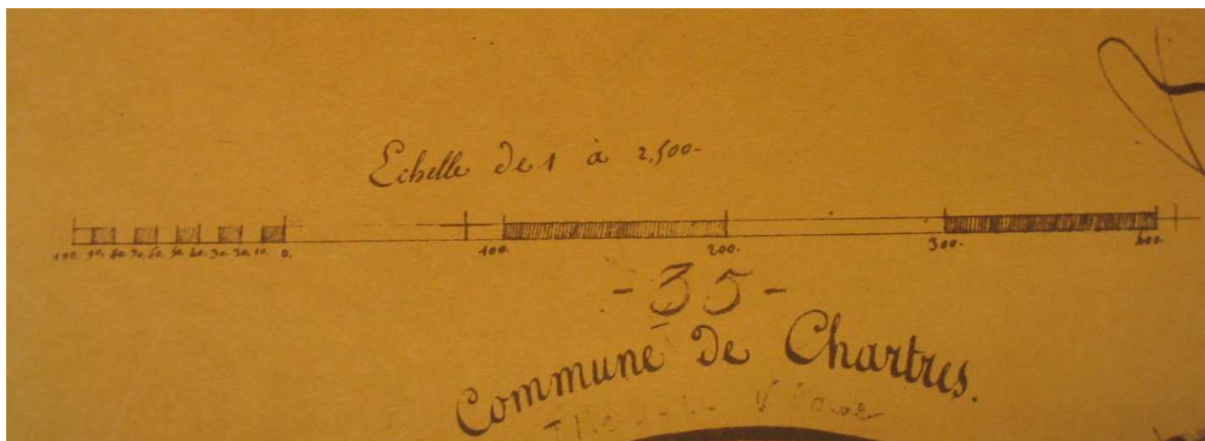 Echelle de 1 à 2,500-
100. 90. 80. 70. 60. 50. 40. 30. 20. 10. 0. 100. 200. 300. 400.
- 35 -
Commune de Chartres.